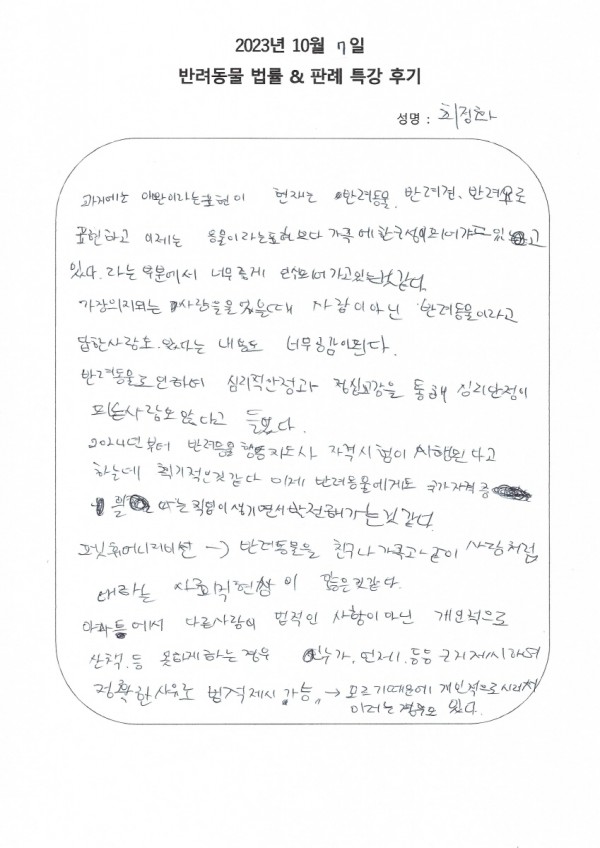 2023년 10월 7일
반려동물 법률 & 판례 특강 후기
성명 : 최정화
과거에는 애완이라는표현이 현재는 반려동물, 반려견, 반려묘로
표현하고 이제는 동물이라는표현보다 가족에한구성이되어가고
있다. 라는 부분에서 너무좋게 변화되어가고있는것같다.
가장의지되는 사람을물었을때 사람이아닌 반려동물이라고
답한사람도 있다는 내용도 너무공감이된다.
반려동물로인하여 심리적안정과 정심교감을 통해 심리안정이
되는사람도있다고 들었다.
2024년부터 반려동물행동지도사 자격시험이 시행된다고
하는데 획기적인것같다 이제 반려동물에게도 국가자격증
를 따는 직업이생기면서발전해가는것같다.
펫휴머니제이션 → 반려동물을 친구나가족과같이 사람처럼
대하는 사회적현상이 많은것같다.
아파트에서 다른사람이 법적인 사항이아닌 개인적으로
산책, 등 못하게하는경우 누가, 언제, 등등
정확한사유로 법적제시 가능, → 모르기때문에개인적으로
이러는경우도 있다.